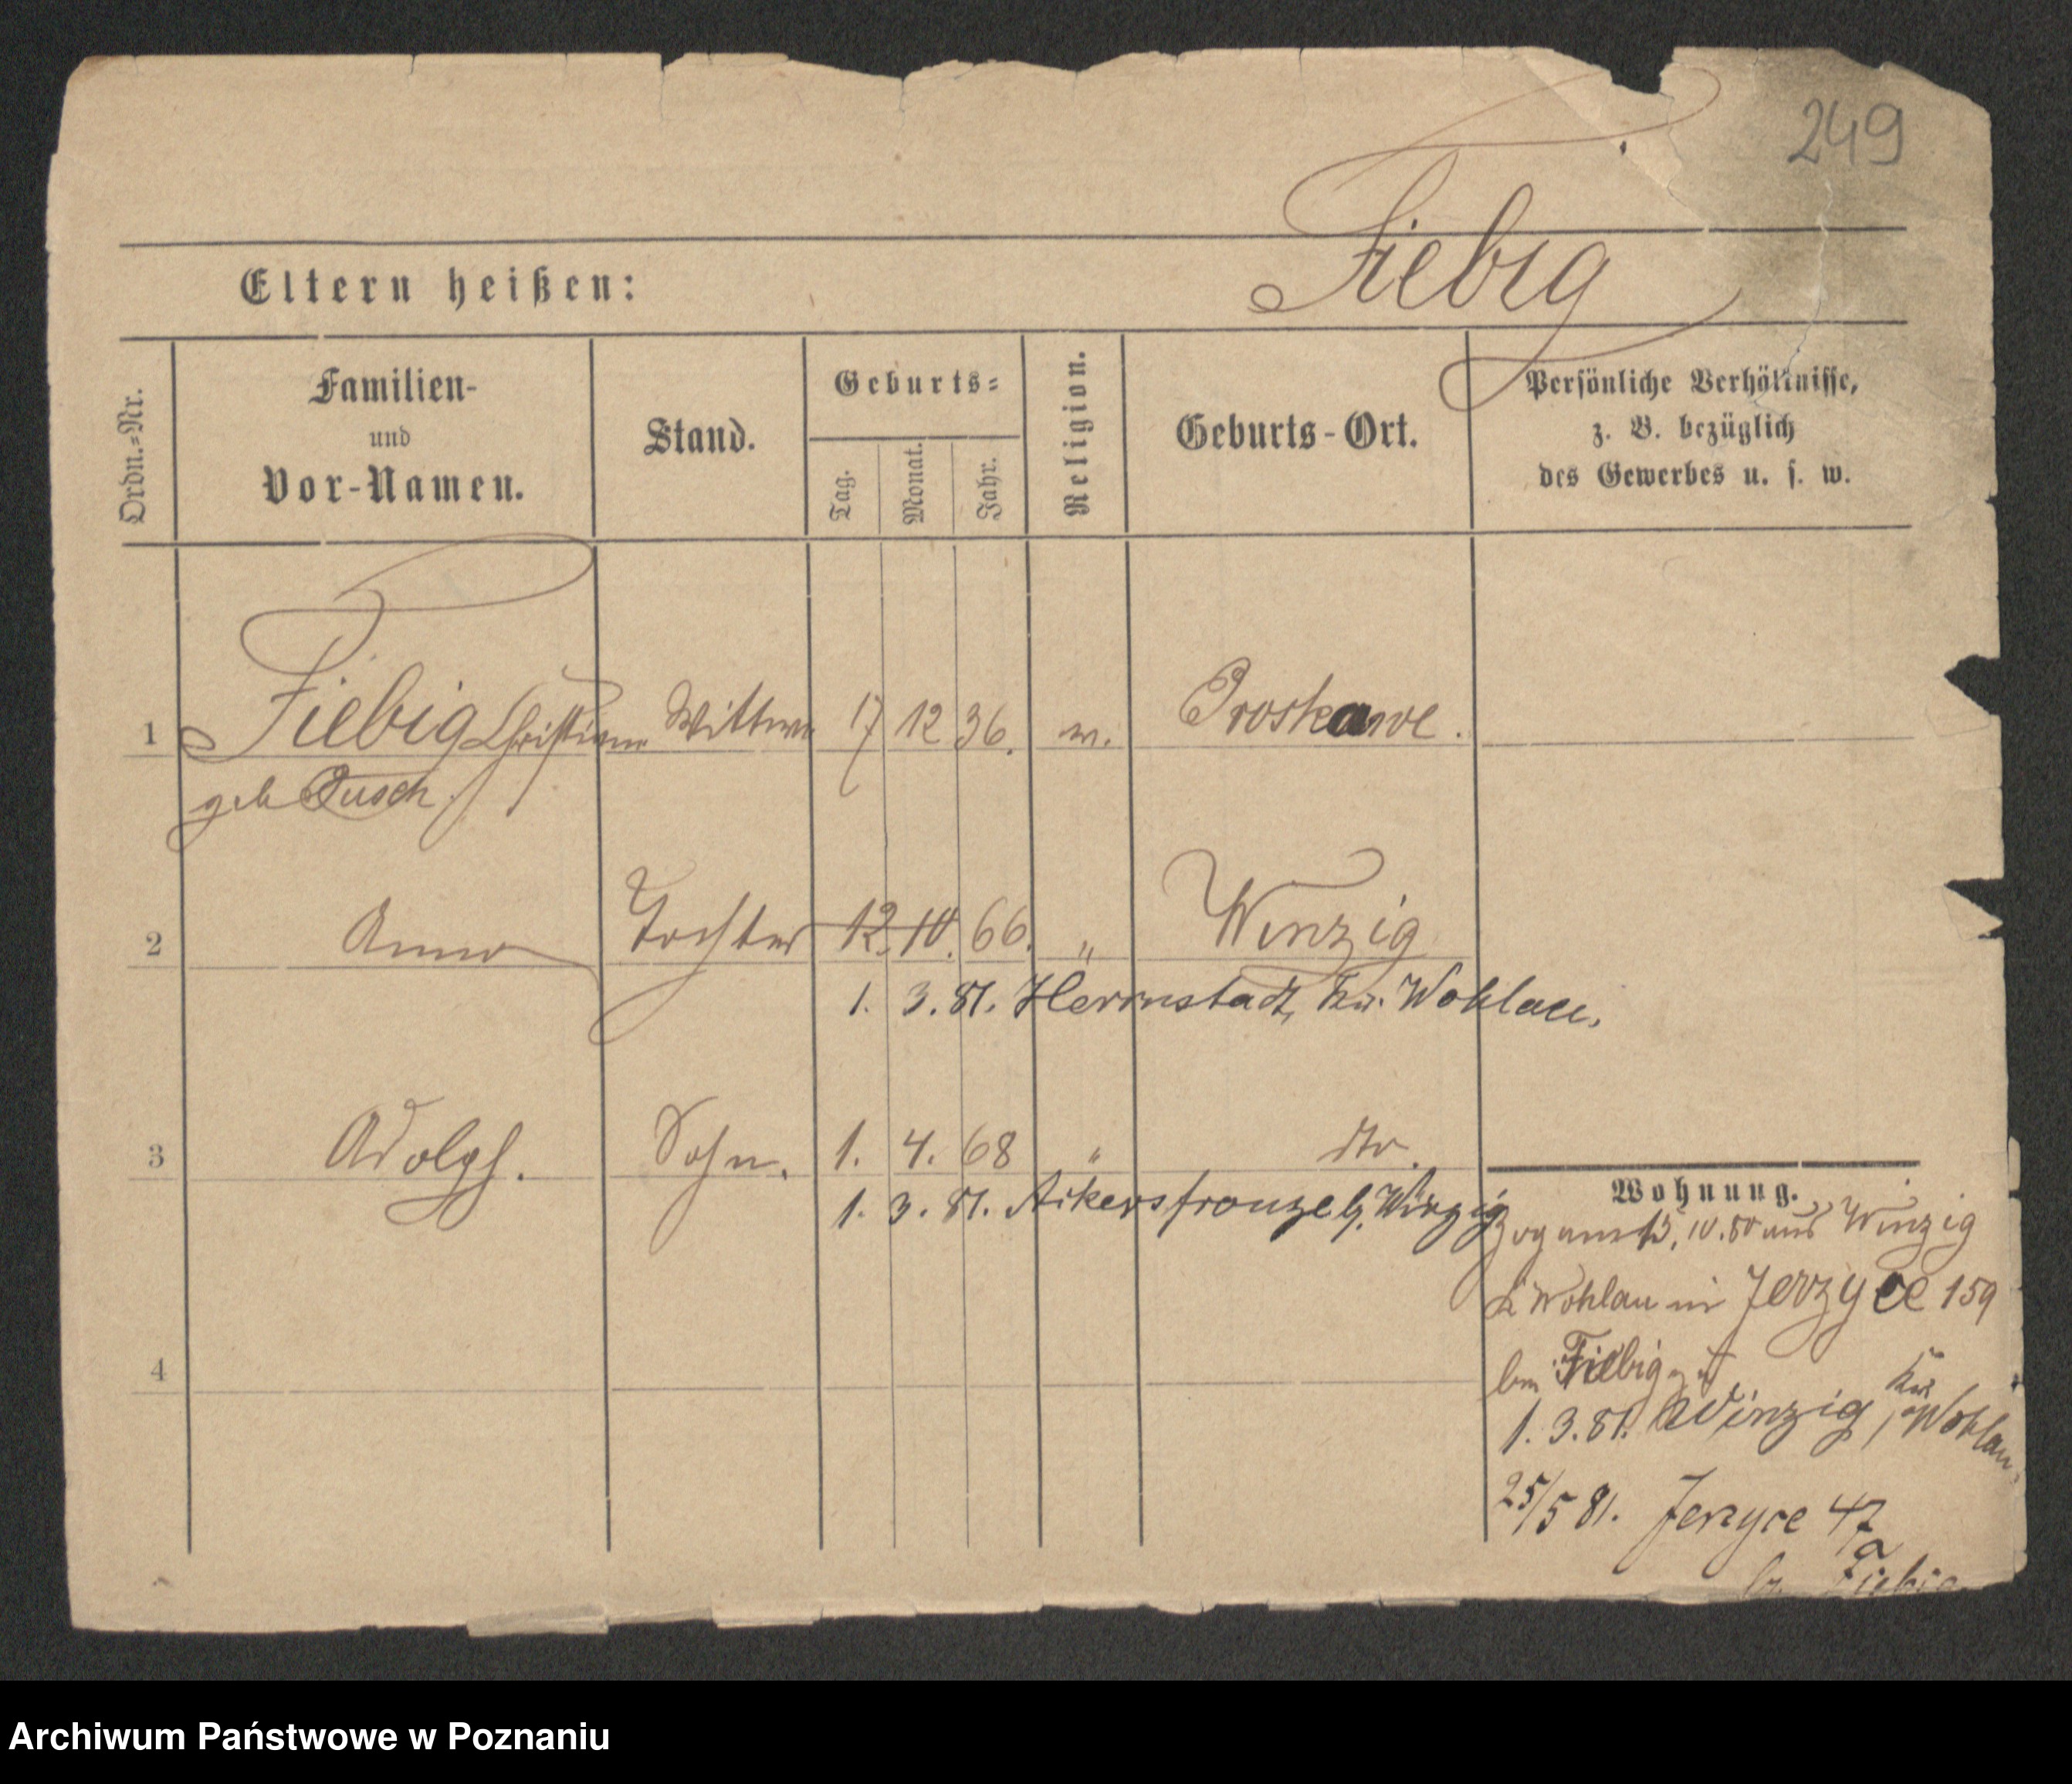 249
Fiebig
Eltern heißen:
Ordn.=Nr.
Familien-
und
Vor-Namen.
Stand.
Geburts=
Tag.
Monat.
Jahr.
Religion.
Geburts-Ort.
Persönliche Verhältnisse,
z. B. bezüglich
des Gewerbes u. s. w.
1 Fiebig Christiane Wittwe 17 12 36.
geb
2 Anna Tochter 12. 10. 66. " Winzig
1. 3. 81. Herrnstadt, Kr. Wohlau.
3 Adolph. Sohn. 1. 4. 68 " dto.
1. 3. 81. Winzig
Wohnung.
Zog am 13. 10. 80 aus Winzig
Wohlau in Jerzyce 159
bei Fiebig
1. 3. 81. Winzig, Kr. Wohlau.
4
25/5 81. Jerzyce 47a
b. Fiebig
Archiwum Państwowe w Poznaniu